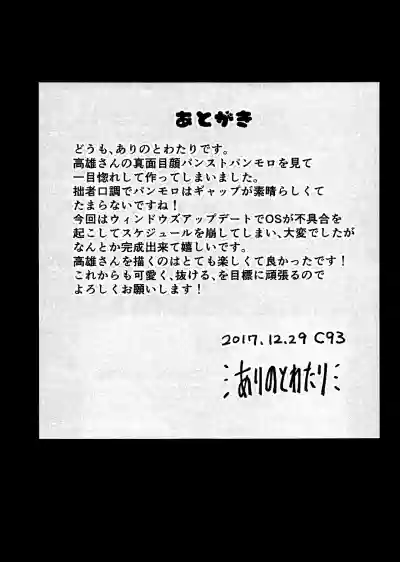 あとがき
どうも、ありのとわたりです。
高雄さんの真面目顔パンストパンモロを見て
一目惚れして作ってしまいました。
拙者口調でパンモロはギャップが素晴らしくて
たまらないですね！
今回はウィンドウズアップデートでOSが不具合を
起こしてスケジュールを崩してしまい、大変でしたが
なんとか完成出来て嬉しいです。
高雄さんを描くのはとても楽しくて良かったです！
これからも可愛く、抜ける、を目標に頑張るので
よろしくお願いします！
2017.12.29 C93
ありのとわたり